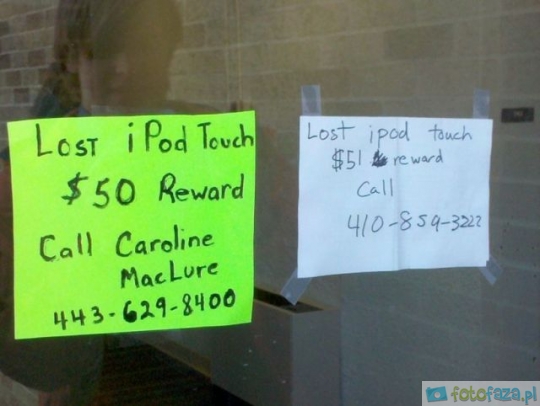 Lost iPod Touch
$50 Reward
Call Caroline
MacLure
443-629-8400
Lost ipod touch
$51 reward
Call
410-859-3222
fotofaza.pl